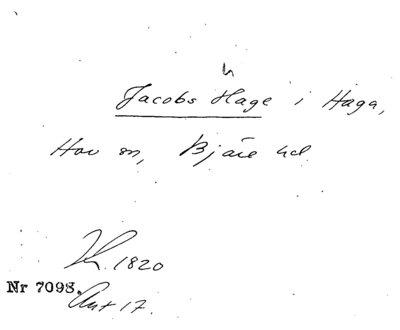 h
Jacobs Hage i Haga,
Hov sn, Bjäre hd
1820
Nr 7098.
Ant 17.